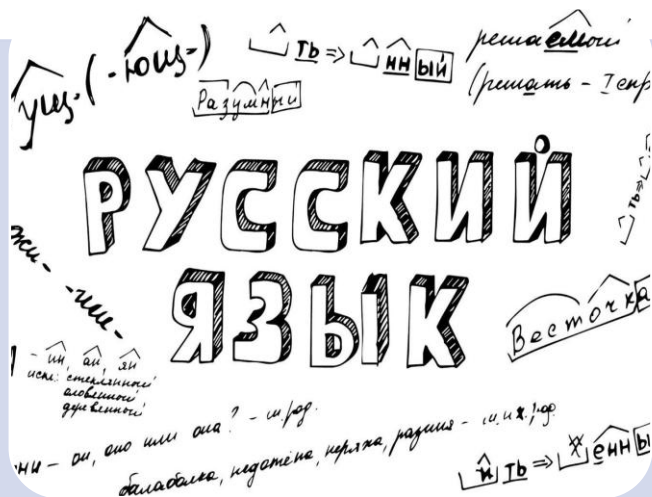 -ущ- (-ющ-)
ть => нный
решаемый
(решать - I спр
Разумный
РУССКИЙ
ЯЗЫК
жи- -ши-
ть =>
Весточка
- ин, ан, ян
искл: стеклянный
оловянный
деревянный
он, оно или она? - м.род.
балаболка, недотёпа, неряха, разиня - м. и ж. род.
и ть => енны